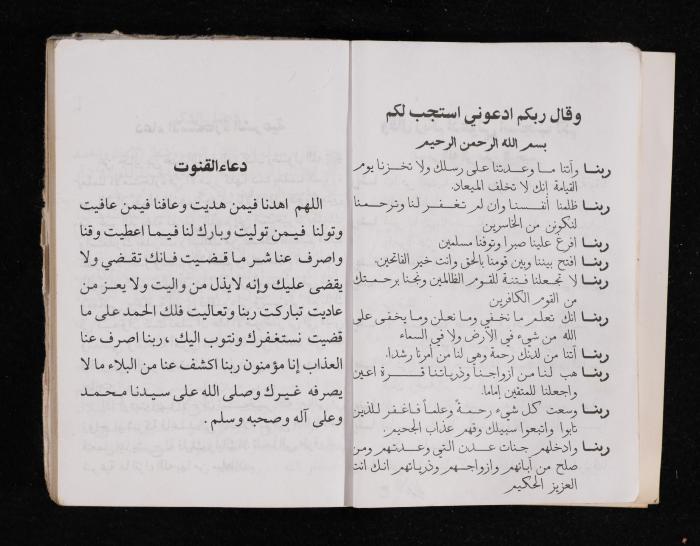 وقال ربكم ادعوني استجب لكم
بسم الله الرحمن الرحيم
ربنا وآتنا ما وعدتنا على رسلك ولا تخزنا يوم
القيامة إنك لا تخلف الميعاد
ربنا ظلمنا أنفسنا وان لم تغفر لنا وترحمنا
لنكونن من الخاسرين
ربنا افرغ علينا صبرا وتوفنا مسلمين
ربنا افتح بيننا وبين قومنا بالحق وانت خير الفاتحين.
ربنا لا تجعلنا فتنة للقوم الظالمين ونجنا برحمتك
من القوم الكافرين
ربنا انك تعلم ما نخفي وما نعلن وما يخفى على
الله من شيء في الأرض ولا في السماء
ربنا آتنا من لدنك رحمة وهي لنا من أمرنا رشدا.
ربنا هب لنا من ازواجنا وذرياتنا قرة اعين
واجعلنا للمتقين إماما.
ربنا وسعت كل شيء رحمة وعلماً فاغفر للذين
تابوا واتبعوا سبيلك وقهم عذاب الجحيم.
ربنا وادخلهم جنات عدن التي وعدتهم ومن
صلح من آبائهم وازواجهم وذرياتهم انك انت
العزيز الحكيم
دعاء القنوت
اللهم اهدنا فيمن هديت وعافنا فيمن عافيت
وتولنا فيمن توليت وبارك لنا فيما اعطيت وقنا
واصرف عنا شر ما قضيت فانك تقضي ولا
يقضى عليك وإنه لايذل من واليت ولا يعز من
عاديت تباركت ربنا وتعاليت فلك الحمد على ما
قضيت نستغفرك ونتوب اليك ،ربنا اصرف عنا
العذاب إنا مؤمنون ربنا اكشف عنا من البلاء ما لا
يصرفه غيرك وصلى الله على سيدنا محمد
وعلى آله وصحبه وسلم.